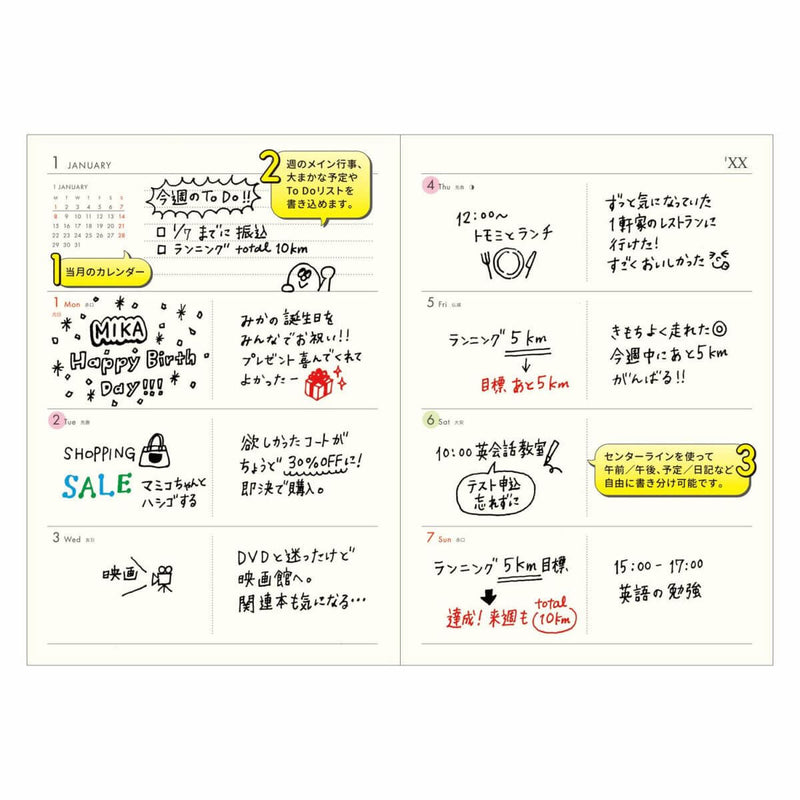 1 JANUARY
1 JANUARY
M T W T F S S
1 2 3 4 5 6 7
8 9 10 11 12 13 14
15 16 17 18 19 20 21
22 23 24 25 26 27 28
29 30 31
今週のTo Do!!
□ 1/7 までに 振込
□ ランニング total 10km
2
週のメイン行事、
大まかな予定や
To Doリストを
書き込めます。
1 当月のカレンダー
1 Mon 赤口
元日
MIKA
Happy Birth
Day!!!
みかの 誕生日を
みんなでお祝い!!
プレゼント喜んでくれて
よかったー
2 Tue 先勝
SHOPPING
SALE マミコちゃんと
ハシゴする
欲しかったコートが
ちょうど 30%OFFに!
即決で購入。
3 Wed
映画
DVDと迷ったけど
映画館へ。
関連本も気になる…
'XX
4 Thu 先負
12:00〜
トモミとランチ
ずっと気になっていた
1軒家のレストランに
行けた!
すごくおいしかった
5 Fri 仏滅
ランニング 5km
目標 あと5km
きもちよく走れた◎
今週中にあと5km
がんばる!!
6 Sat 大安
10:00 英会話教室
テスト申込
忘れずに
センターラインを使って
午前/午後、予定/日記など
自由に書き分け可能です。
3
7 Sun 赤口
ランニング 5km 目標
達成! 来週も total
10km
15:00 - 17:00
英語の勉強